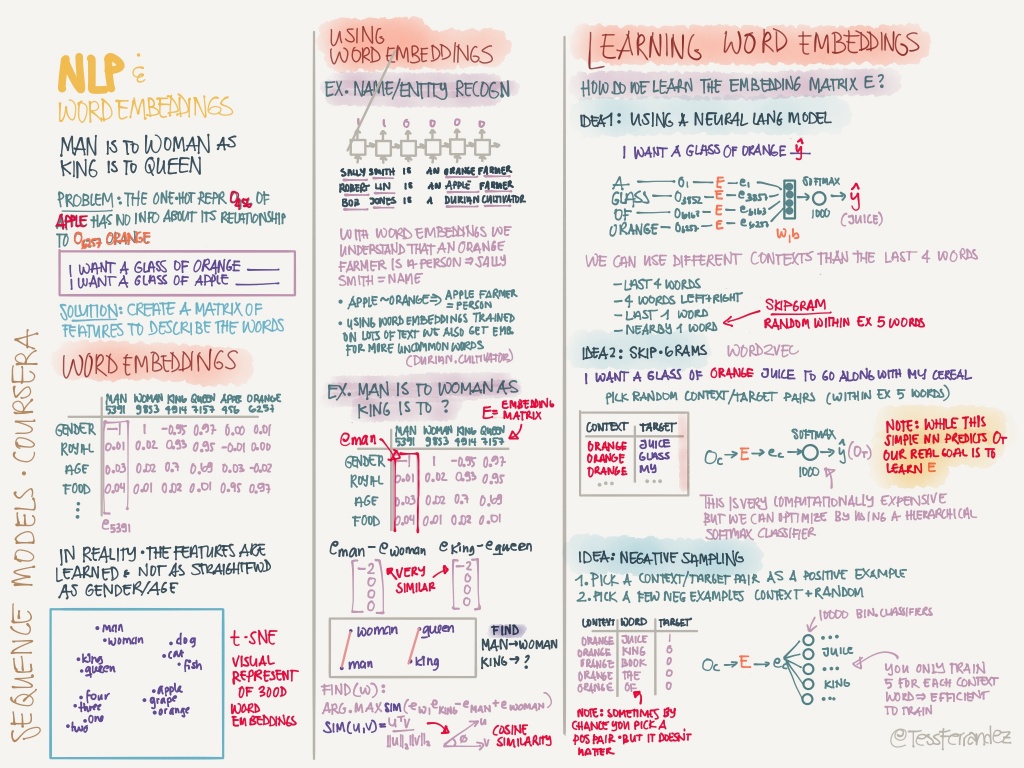 SEQUENCE MODELS · COURSERA
NLP &
WORD EMBEDDINGS
MAN IS TO WOMAN AS
KING IS TO QUEEN
PROBLEM: THE ONE-HOT REPR O456 OF
APPLE HAS NO INFO ABOUT ITS RELATIONSHIP
TO O6257 ORANGE
I WANT A GLASS OF ORANGE ____
I WANT A GLASS OF APPLE ____
SOLUTION: CREATE A MATRIX OF
FEATURES TO DESCRIBE THE WORDS
WORD EMBEDDINGS
MAN WOMAN KING QUEEN APPLE ORANGE
5391 9853 4914 7157 456 6257
GENDER -1 1 -0.95 0.97 0.00 0.01
ROYAL 0.01 0.02 0.93 0.95 -0.01 0.00
AGE 0.03 0.02 0.7 0.69 0.03 -0.02
FOOD 0.04 0.01 0.02 0.01 0.95 0.97
e5391
IN REALITY · THE FEATURES ARE
LEARNED & NOT AS STRAIGHTFWD
AS GENDER/AGE
man
woman
dog
cat
fish
king
queen
four
three
one
two
apple
grape
orange
t-SNE
VISUAL
REPRESENT
OF 300D
WORD
EMBEDDINGS
USING
WORD EMBEDDINGS
EX. NAME/ENTITY RECOGN
1 1 0 0 0 0
SALLY SMITH IS AN ORANGE FARMER
ROBERT LIN IS AN APPLE FARMER
BOB JONES IS A DURIAN CULTIVATOR
WITH WORD EMBEDDINGS WE
UNDERSTAND THAT AN ORANGE
FARMER IS A PERSON ⇒ SALLY
SMITH = NAME
• APPLE ~ ORANGE ⇒ APPLE FARMER
= PERSON
• USING WORD EMBEDDINGS TRAINED
ON LOTS OF TEXT WE ALSO GET EMB.
FOR MORE UNCOMMON WORDS
(DURIAN, CULTIVATOR)
EX. MAN IS TO WOMAN AS
KING IS TO ?
E = EMBEDDING
MATRIX
eman
MAN WOMAN KING QUEEN
5391 9853 4914 7157
GENDER -1 1 -0.95 0.97
ROYAL 0.01 0.02 0.93 0.95
AGE 0.03 0.02 0.7 0.69
FOOD 0.04 0.01 0.02 0.01
eman - ewoman eking - equeen
-2 -2
0 0
0 0
0 0
VERY
SIMILAR
woman
queen
man
king
FIND
MAN→WOMAN
KING→?
FIND(W):
ARG.MAX SIM(ew, eking - eman + ewoman)
SIM(u,v) = uTv / ||u||2||v||2
u
ø
v
COSINE
SIMILARITY
LEARNING WORD EMBEDDINGS
HOW DO WE LEARN THE EMBEDDING MATRIX E?
IDEA1: USING A NEURAL LANG MODEL
I WANT A GLASS OF ORANGE ŷ
A — O1 — E → e1
GLASS — O3852 — E → e3852
OF — O6163 — E → e6163
ORANGE — O6257 — E → e6257
w,b
SOFTMAX
1000
ŷ
(JUICE)
WE CAN USE DIFFERENT CONTEXTS THAN THE LAST 4 WORDS
- LAST 4 WORDS
- 4 WORDS LEFT+RIGHT
- LAST 1 WORD
- NEARBY 1 WORD
SKIPGRAM
RANDOM WITHIN EX 5 WORDS
IDEA2: SKIP-GRAMS WORD2VEC
I WANT A GLASS OF ORANGE JUICE TO GO ALONG WITH MY CEREAL
PICK RANDOM CONTEXT/TARGET PAIRS (WITHIN EX 5 WORDS)
CONTEXT TARGET
ORANGE JUICE
ORANGE GLASS
ORANGE MY
...
Oc → E → ec → ŷ (OT)
SOFTMAX
1000
NOTE: WHILE THIS
SIMPLE NN PREDICTS OT
OUR REAL GOAL IS TO
LEARN E
THIS IS VERY COMPUTATIONALLY EXPENSIVE
BUT WE CAN OPTIMIZE BY USING A HIERARCHICAL
SOFTMAX CLASSIFIER
IDEA: NEGATIVE SAMPLING
1. PICK A CONTEXT/TARGET PAIR AS A POSITIVE EXAMPLE
2. PICK A FEW NEG EXAMPLES CONTEXT + RANDOM
CONTEXT WORD TARGET
ORANGE JUICE 1
ORANGE KING 0
ORANGE BOOK 0
ORANGE THE 0
ORANGE OF 0
NOTE: SOMETIMES BY
CHANCE YOU PICK A
POS PAIR · BUT IT DOESN'T
MATTER
10000 BIN. CLASSIFIERS
Oc → E → ec
...
JUICE
...
KING
...
YOU ONLY TRAIN
5 FOR EACH CONTEXT
WORD ⇒ EFFICIENT
TO TRAIN
@TessFerrandez